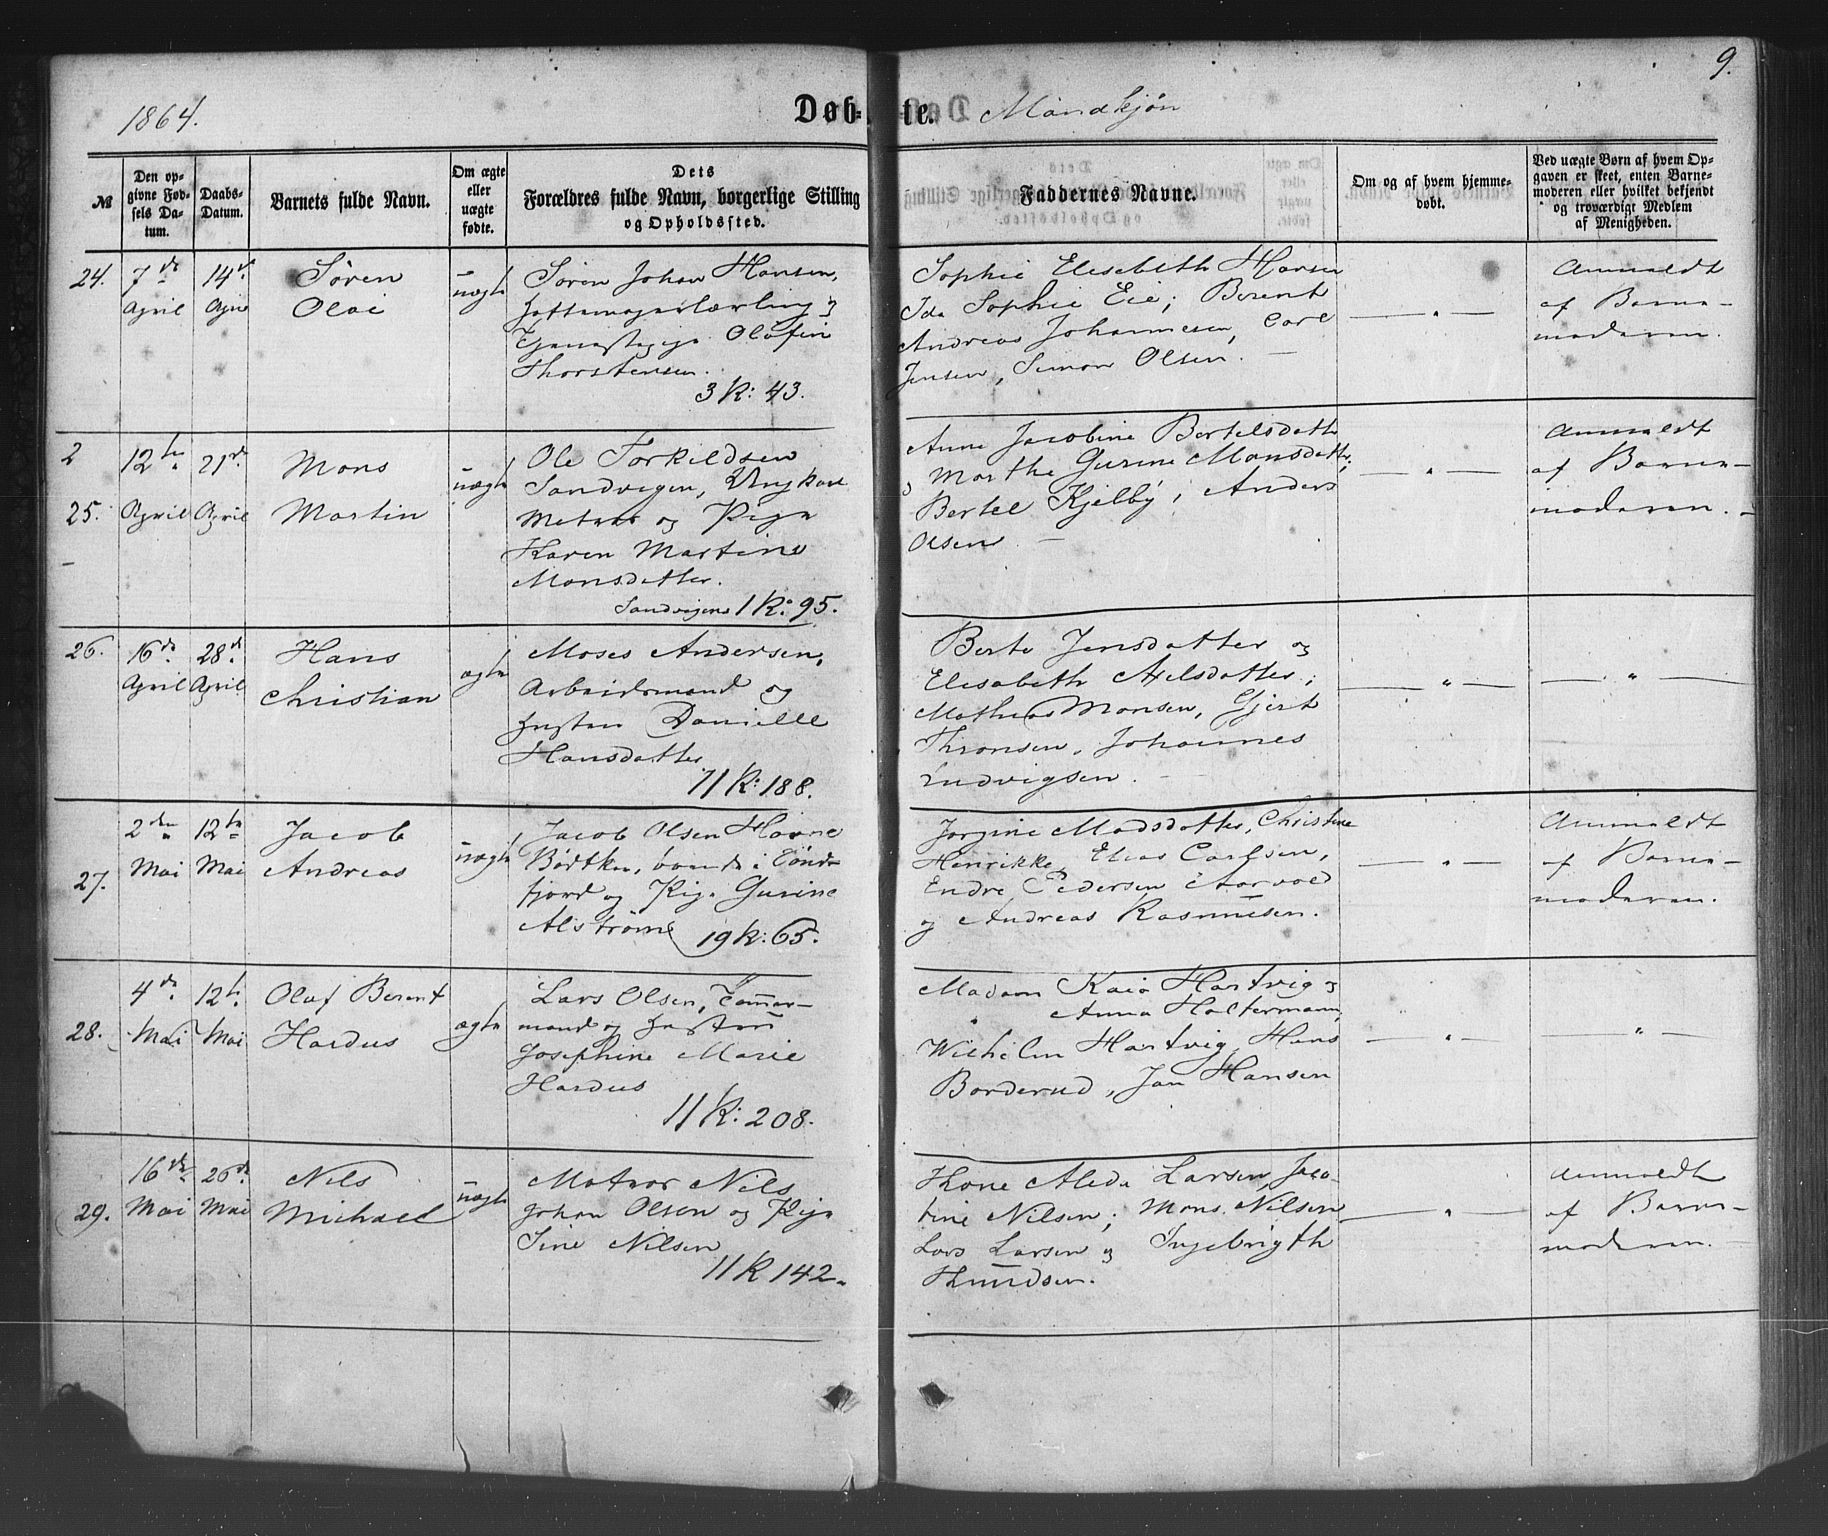 9.
1864.
Døb-te. Mandkjøn
№
Den op-
givne Fød-
sels Da-
tum.
Daabs-
Datum.
Barnets fulde Navn.
Om ægte
eller
uægte
fødte.
Dets
Forældres fulde Navn, borgerlige Stilling
og Opholdssted.
Faddernes Navne.
Om og af hvem hjemme-
døbt.
Ved uægte Børn af hvem Op-
gaven er skeet, enten Barne-
moderen eller hvilket bekjendt
og troværdigt Medlem
af Menigheden.
24.
7de
April
14de
Apr
Søren
Olai
uægte
Søren Johan Hansen,
og
Tjenestepige Olafin
Thorstensen.
3 K: 43.
Sophie Elisebeth Hansen
Ida Sophie Eie; Berent
Andreas Johannesen, Carl
Jensen, Simon Olsen.
— " —
Anmeldt
af Barne-
moderen.
2
25.
12te
April
21de
April
Mons
Martin
uægte
Ole Torkildsen
Sandvigen,
Matros og Pige
Karen Martine
Monsdatter.
Sandvigen 1 K: 95.
Anne Jacobine Bertelsdatter
og Marthe Gurine Monsdatter;
Bertel Kjelby; Anders
Olsen
— " —
Anmeldt
af Barne-
moderen.
26.
16de
April
28de
April
Hans
Christian
ægte
Moses Andersen,
Arbeidsmand og
Hustru Danielle
Hansdatter
11 K: 188.
Berte Jensdatter og
Elisabeth Axelsdatter;
Mathias Monsen, Gjert
Thronsen, Johannes
Ludvigsen.
— " —
— " —
27.
2den
Mai
12te
Mai
Jacob
Andreas
uægte
Jacob Olsen Havne
Bødtker, boende i Sønd-
fjord og Pige Gurine
Alstrøm 19 K: 65.
Jorgine Madsdatter, Christine
Henrikke, Elias Carlsen,
Endre Pedersen Aarvold
og Andreas Rasmusen.
— " —
Anmeldt
af Barne-
moderen.
28.
4de
Mai
12te
Mai
Olaf Berent
Hardus
ægte
Lars Olsen, Tømmer-
mand og Hustru
Josephine Marie
Hardus
11 K: 208.
Madam Kaia Hartvig og
" Anna Holtermann,
Wilhelm Hartvig, Hans
Borderud, Jan Hansen
— " —
— " —
29.
16de
Mai
26de
Mai
Nils
Michael
uægte
Matros Nils
Johan Olsen og Pige
Sine Nilsen
11 K 142.
Thone Aleda Larsen, Jaco-
bine Nilsen; Mons Nilsen
Lars Larsen og Ingebrigth
Knudsen.
— " —
Anmeldt
af Barne-
moderen.